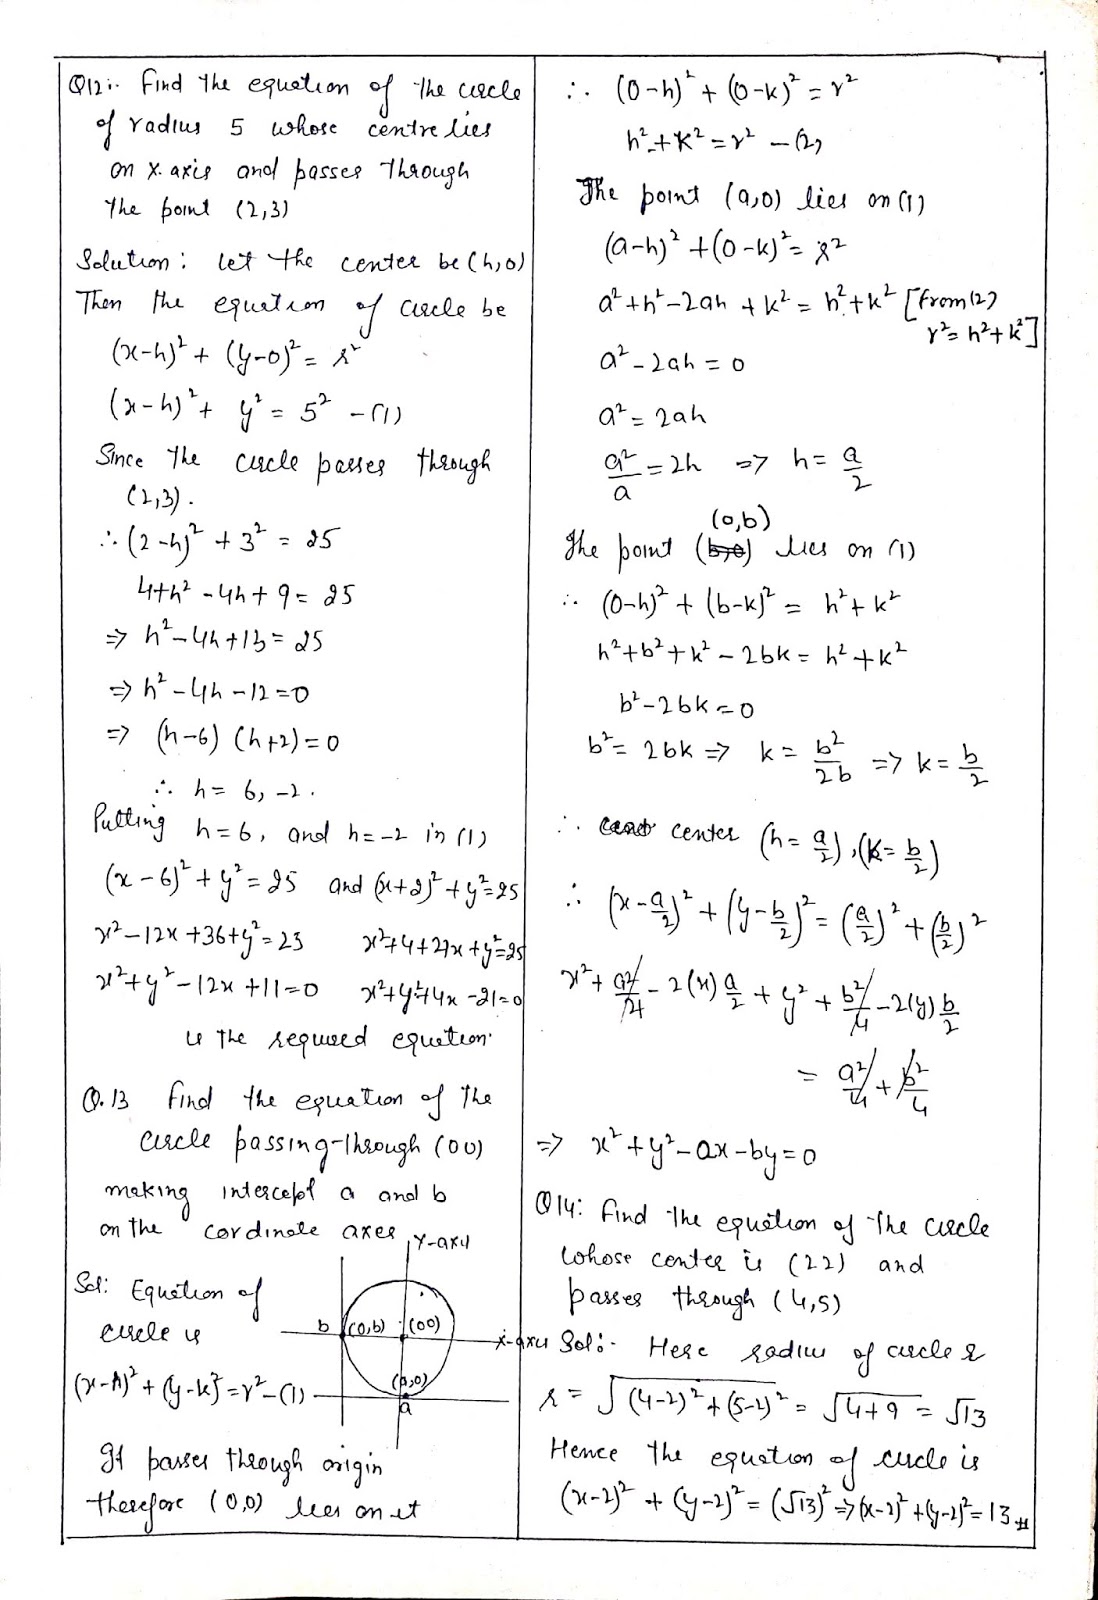 Q12:- Find the equation of the circle
of radius 5 whose centre lies
on x-axis and passes through
the point (2,3)
Solution: let the center be (h,0)
Then the equation of circle be
(x-h)² + (y-0)² = r²
(x-h)² + y² = 5² -(1)
Since the circle passes through
(2,3).
∴ (2-h)² + 3² = 25
4+h² -4h + 9 = 25
⇒ h² -4h +13 = 25
⇒ h² -4h -12 = 0
⇒ (h-6) (h+2) = 0
∴ h = 6, -2.
Putting h=6, and h=-2 in (1)
(x-6)² + y² = 25 and (x+2)² + y² = 25
x² -12x +36+y² = 23 x²+4+22x+y²=25
x²+y² -12x +11=0 x²+y²+4x -21=0
is the required equation.
Q.13 Find the equation of the
circle passing through (00)
making intercept a and b
on the cordinate axes
Y-axis
Sol: Equation of
circle is
b (0,b) (00)
x-axis
(x-h)² + (y-k)² = r² -(1)
(a,0)
a
It passes through origin
therefore (0,0) lies on it
∴ (0-h)² + (0-k)² = r²
h² + k² = r² -(2)
The point (a,0) lies on (1)
(a-h)² + (0-k)² = r²
a² + h² - 2ah + k² = h² + k² [from (2)
r² = h² + k²]
a² - 2ah = 0
a² = 2ah
a²/a = 2h ⇒ h = a/2
(0,b)
The point (b,0) lies on (1)
∴ (0-h)² + (b-k)² = h² + k²
h² + b² + k² - 2bk = h² + k²
b² - 2bk = 0
b² = 2bk ⇒ k = b²/2b ⇒ k = b/2
∴ center (h = a/2), (k = b/2)
∴ (x - a/2)² + (y - b/2)² = (a/2)² + (b/2)²
x² + a²/4 - 2(x) a/2 + y² + b²/4 - 2(y) b/2
= a²/4 + b²/4
⇒ x² + y² - ax - by = 0
Q14: Find the equation of the circle
whose center is (22) and
passes through (4,5)
Sol:- Here radius of circle r
r = √(4-2)² + (5-2)² = √4+9 = √13
Hence the equation of circle is
(x-2)² + (y-2)² = (√13)² ⇒ (x-2)² + (y-2)² = 13 #